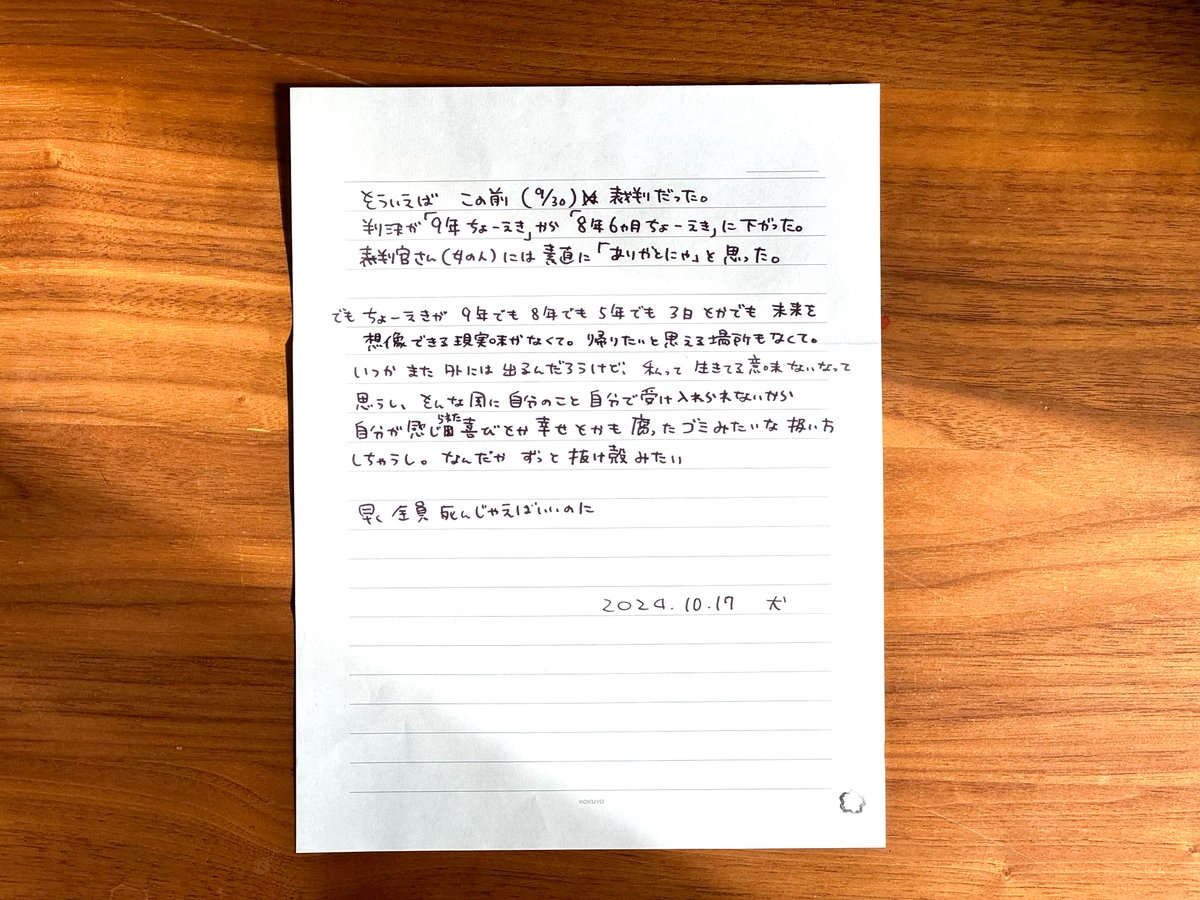 そういえば この前 (9/30) 裁判だった。
判決が「9年ちょーえき」から「8年6ヵ月ちょーえき」に下がった。
裁判官さん(女の人)には素直に「ありがとにゃ」と思った。
でもちょーえきが 9年でも 8年でも 5年でも 3日とかでも 未来を
想像できる現実味がなくて。帰りたいと思える場所もなくて。
いつか また 外には 出るんだろうけど、私って 生きてる意味ないなって
思うし、そんな風に自分のこと自分で受け入れられないから
自分が感じられた喜びとか幸せとかも 腐ったゴミみたいな扱い方
しちゃうし。なんだか ずっと 抜け殻みたい
早く全員 死んじゃえばいいのに
2024.10.17 犬
KOKUYO